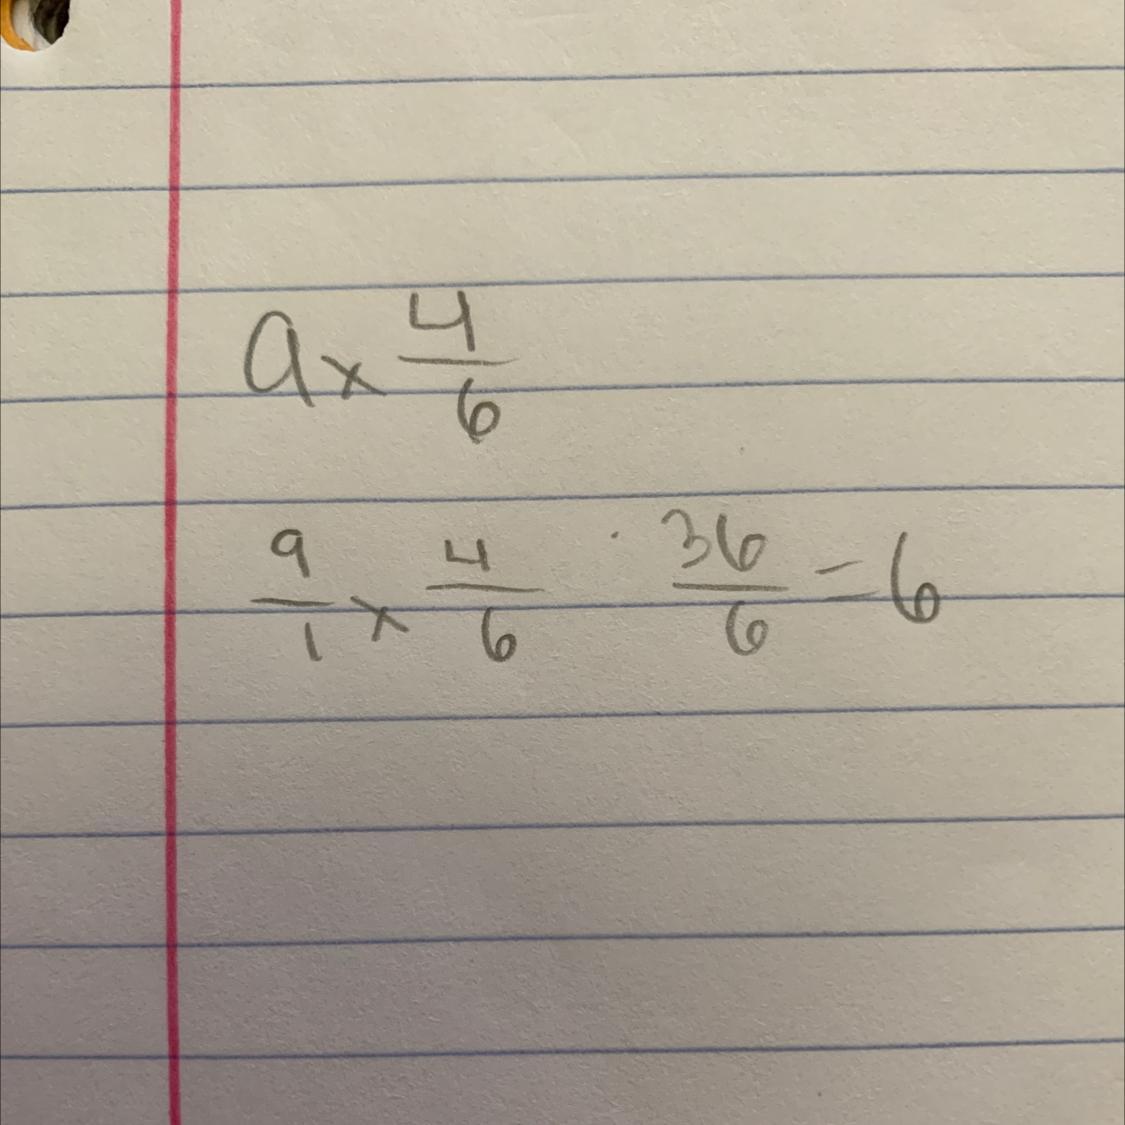 9 x 4/6
9/1 x 4/6 36/6 = 6